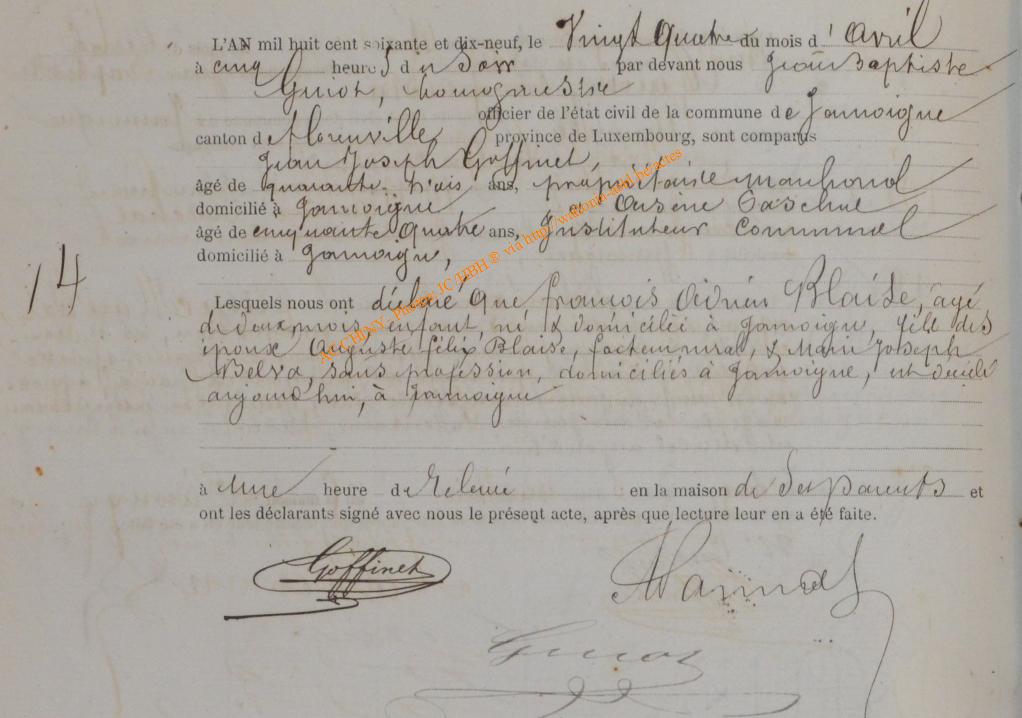 L'AN mil huit cent soixante et dix-neuf, le Vingt Quatre du mois d'Avril
à cinq heures du Soir par devant nous Jean Baptiste
Guiot, bourgmestre
officier de l'état civil de la commune de Jamoigne
canton de florenville province de Luxembourg, sont comparus
Jean Joseph Goffinet,
âgé de quarante trois ans, propriétaire marchand
domicilié à Jamoigne, et Arsène
âgé de cinquante Quatre ans, Instituteur Communal
domicilié à Jamoigne,
14
Lesquels nous ont déclaré Que françois Blaise, agé
de deux mois, enfant, né & domicilié à Jamoigne, fils des
époux Auguste félix Blaise, facteur rural, & Marie Joseph
Belva, sans profession, domiciliés à Jamoigne, est décédé
aujourd'hui, à Jamoigne
à une heure de Relevée en la maison de Ses parents et
ont les déclarants signé avec nous le présent acte, après que lecture leur en a été faite.
Goffinet
Guiot
AC CHINY - Photos JC HBH ® via http://wallonia-asbl.be/actes